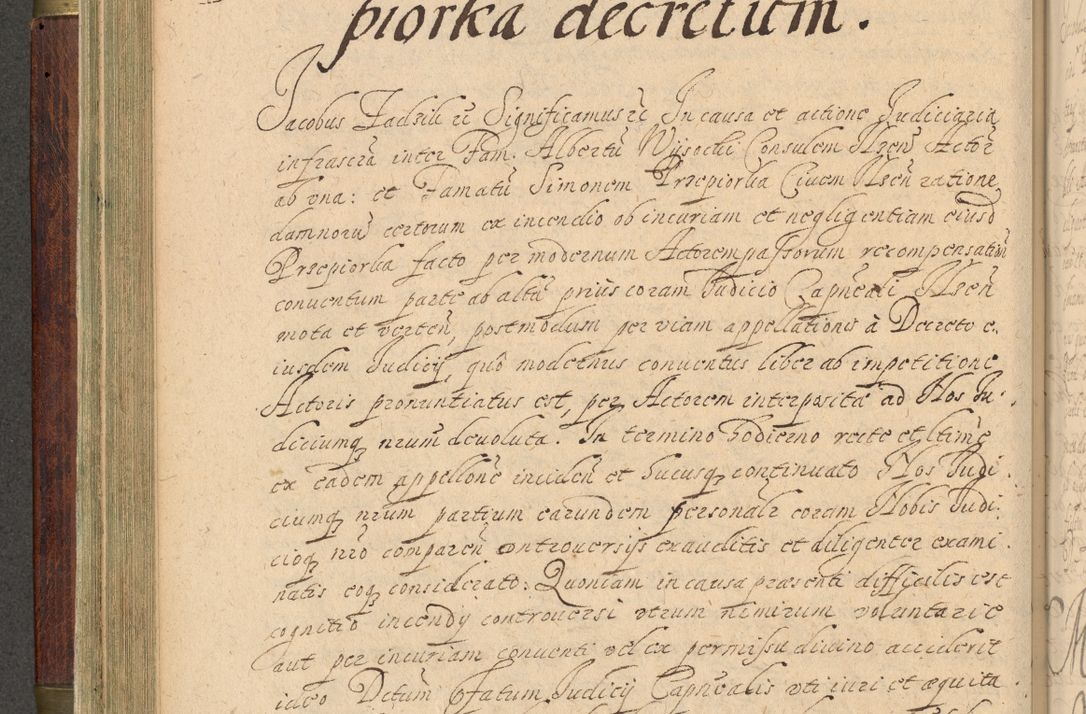 piorka decretum.
Jacobus Zadzik etc Significamus etc In causa et actione Judiciaria
infrascra inter Fam. Albertū Wysocki Consulem Nrsen̄ Actor̄
ab vna: et Famatū Simonem Przepiorka Ciuem Nrsen̄ ratione
damnorū certorum ex incendio ob incuriam et negligentiam eiusd
Przepiorka facto per modernum Actorem passorum recompensatin̄
conuentum parte ab altā prius coram Judicio Capn̄eali Nrsen̄
mota et verten̄, postmodum per viam appellationis à Decreto e,
iusdem Judicij, quô modernus conuentus liber ab impetitione
Actoris pronuntiatus est, per Actorem interposita ad Nos Ju,
diciumq nrum deuoluta. In termino hodierno recte et ltime
ex eadem appellone inciden̄ et hucusq continuato Nos Judi,
ciumq nrum partium earundem personalr coram Nobis Judi,
cioq nrō comparen̄ controuersijs exauditis et diligenter exami,
natis eoq considerato: Quoniam in causa praesenti difficilis est
cognitio incendy controuersi vtrum nimirum voluntarie
aut per incuriam conuenti vel ex permissu diuino acciderit
ideo Dctum Pfatum Judicij Capn̄ealis vti iuri et æquita,